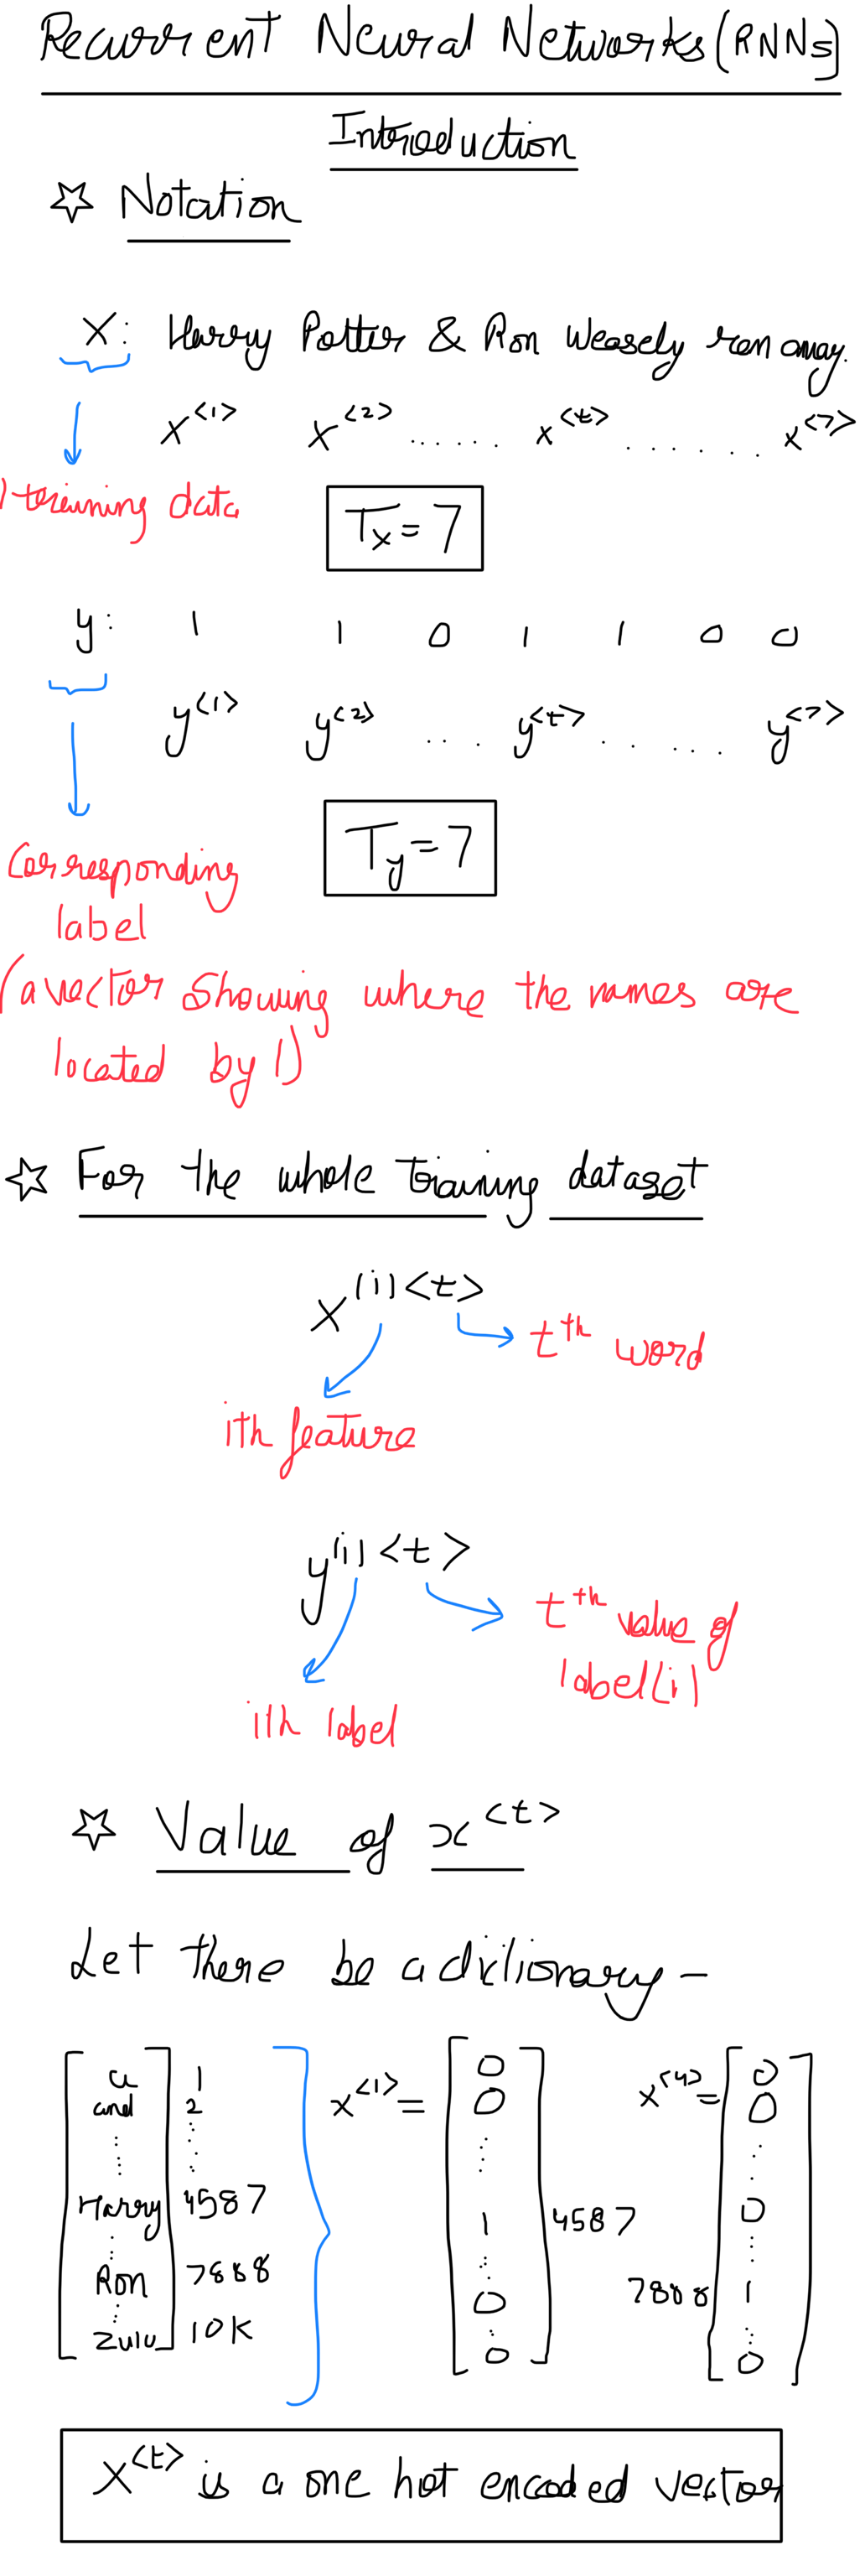 Recurrent Neural Networks (RNNs)
Introduction
☆ Notation
X: Harry Potter & Ron Weasely ran away.
x<1> x<2> ...... x<t> ...... x<7>
training data
Tx = 7
y: 1 1 0 1 1 0 0
y<1> y<2> ... y<t> ...... y<7>
Ty = 7
Corresponding
label
(a vector showing where the names are
located by 1)
☆ For the whole training dataset
x(i)<t>
tth word
ith feature
y(i)<t>
tth value of
label(i)
ith label
☆ Value of x<t>
Let there be a dictionary –
a 1 x<1> = 0 x<4> = 0
and 2 0 0
Harry 4587 1 4587 0
Ron 7888 0 7888 1
Zulu 10K 0 0
X<t> is a one hot encoded vector